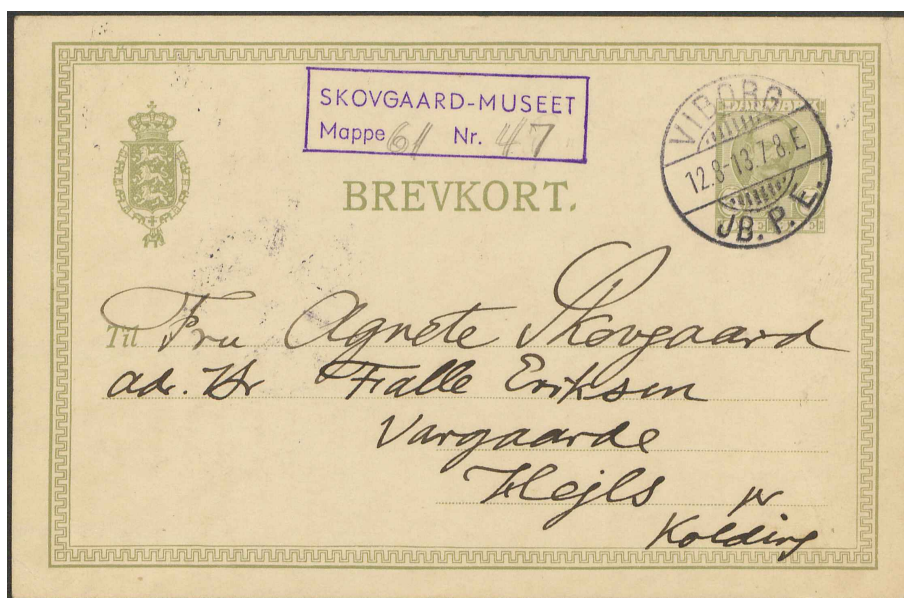 SKOVGAARD-MUSEET
Mappe 61 Nr. 47
BREVKORT.
DANMARK
VIBORG
12.8-13.7-8.E
JB.P.E.
Til Fru Agnete Skovgaard
adr. Hr Falle Eriksen
Vargaarde
Hejls pr
Kolding